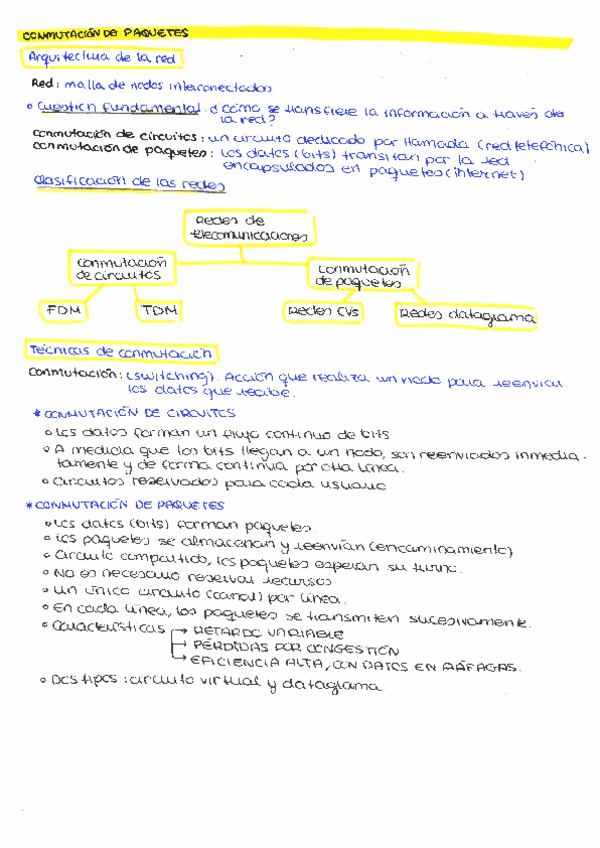 CONMUTACIÓN DE PAQUETES
Arquitectura de la red
Red: malla de nodos interconectados
Cuestión fundamental. ¿ Cómo se transfiere la información a través de
la red?
conmutación de circuitos: un circuito dedicado por llamada (red telefónica)
conmutación de paquetes: Los datos (bits) transitan por la red
encapsulados en paquetes (internet)
Clasificación de las redes
Redes de
telecomunicaciones
Conmutación
de circuitos
Conmutación
de paquetes
FDM
TDM
Redes CVs
Redes datagrama
Técnicas de conmutación
Conmutación: (switching). Acción que realiza un nodo para reenviar
los datos que recibe.
* CONMUTACIÓN DE CIRCUITOS
Los datos forman un flujo continuo de bits
A medida que los bits llegan a un nodo, son reenviados inmedia-
tamente y de forma continua por otra línea.
Circuitos reservados para cada usuario
* CONMUTACIÓN DE PAQUETES
Los datos (bits) forman paquetes
Los paquetes se almacenan y reenvían (encaminamiento)
Circuito compartido, los paquetes esperan su turno.
No es necesario reservar recursos
Un único circuito (canal) por línea.
En cada línea, los paquetes se transmiten sucesivamente.
Características → RETARDO VARIABLE
→ PÉRDIDAS POR CONGESTIÓN
→ EFICIENCIA ALTA, CON DATOS EN RÁFAGAS.
Dos tipos: circuito virtual y datagrama